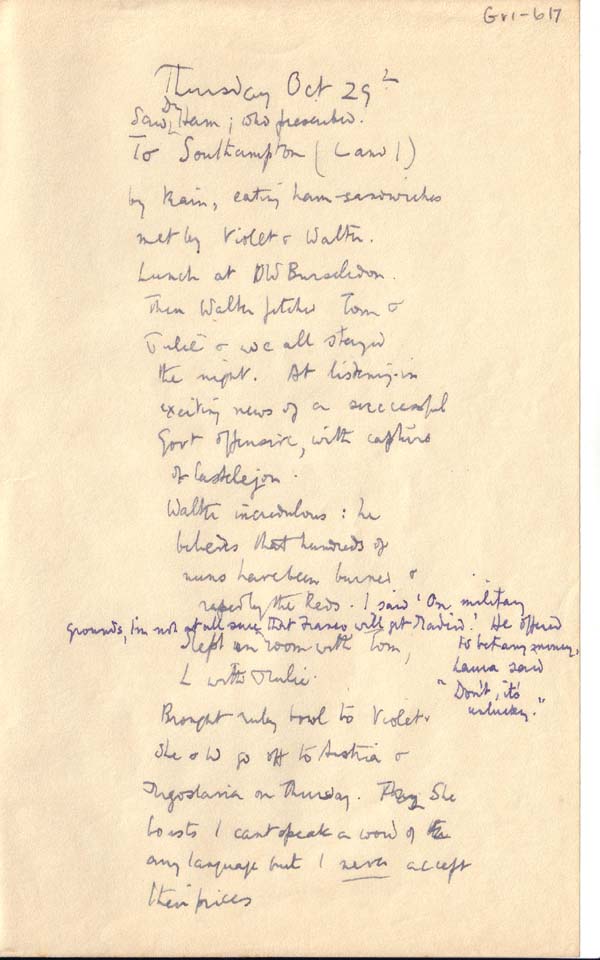 Gr1-617
Thursday Oct 29
Saw Dr Ham; who prescribed.
To Southampton (L and I)
by train, eating ham-sandwiches
met by Violet & Walter.
Lunch at Old Bursledon.
Then Walter fetched Tom &
Julie & we all stayed
the night. At listening-in
exciting news of a successful
Govt offensive, with capture
of Castelejon.
Walter incredulous: he
believes that hundreds of
nuns have been burned &
raped by the Reds. I said 'On military
grounds, I'm not at all sure that Franco will get Madrid.' He offered
to bet any money,
Laura said
"Don't, it's
unlucky."
Slept in room with Tom,
L with Julie.
Brought ruby bowl to Violet.
She & W go off to Austria &
Jugoslavia on Thursday. She
boasts I cant speak a word of
any language but I never accept
their prices